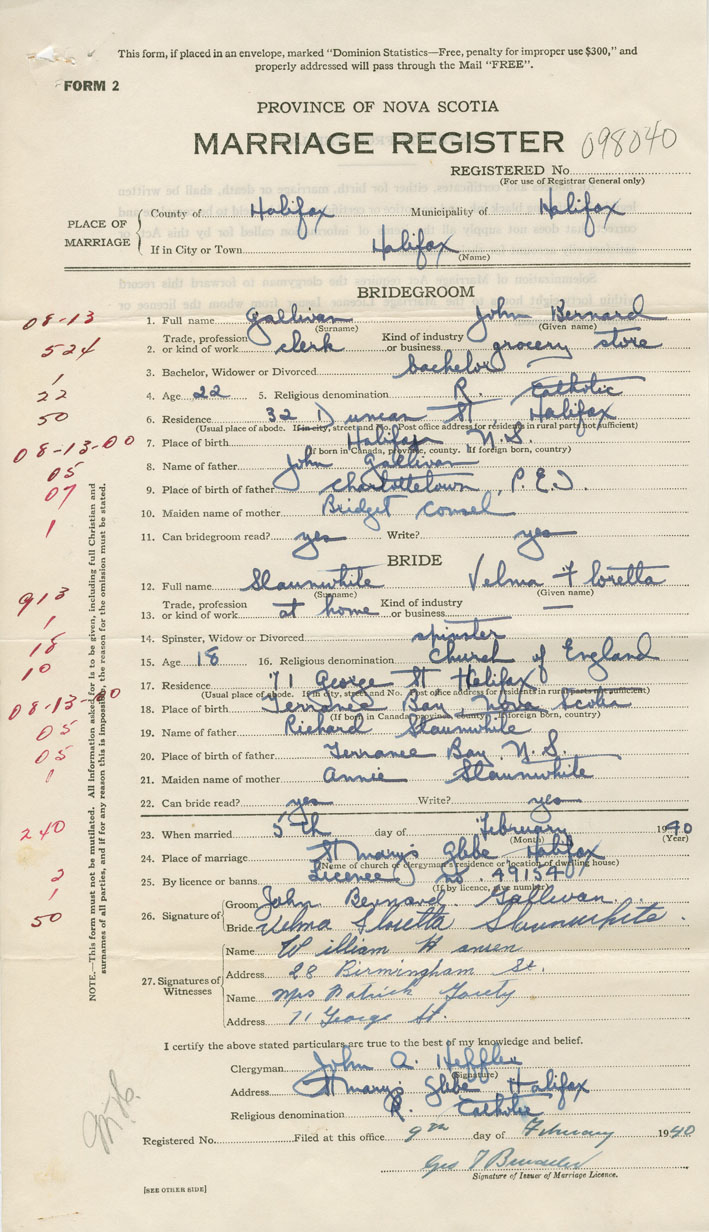 This form, if placed in an envelope, marked "Dominion Statistics—Free, penalty for improper use $300," and
properly addressed will pass through the Mail "FREE".
FORM 2
PROVINCE OF NOVA SCOTIA
MARRIAGE REGISTER 098040
REGISTERED No.
(For use of Registrar General only)
PLACE OF MARRIAGE
County of Halifax Municipality of Halifax
If in City or Town Halifax
(Name)
BRIDEGROOM
08-13 1. Full name Gallivan John Bernard
(Surname) (Given name)
524 2. Trade, profession or kind of work clerk Kind of industry or business grocery store
1 3. Bachelor, Widower or Divorced bachelor
22 4. Age 22 5. Religious denomination R. Catholic
50 6. Residence 32 Duncan St, Halifax
(Usual place of abode. If in city, street and No. Post office address for residents in rural parts not sufficient)
08-13-00 7. Place of birth Halifax N.S.
(If born in Canada, province, county. If foreign born, country)
05 8. Name of father John Gallivan
07 9. Place of birth of father Charlottetown, P.E.I.
10. Maiden name of mother Bridget Consel
1 11. Can bridegroom read? yes Write? yes
BRIDE
12. Full name Slaunwhite Velma Floretta
(Surname) (Given name)
913 13. Trade, profession or kind of work at home Kind of industry or business —
1 14. Spinster, Widow or Divorced spinster
18 15. Age 18 16. Religious denomination Church of England
10 17. Residence 71 George St Halifax
(Usual place of abode. If in city, street and No. Post office address for residents in rural parts not sufficient)
08-13-00 18. Place of birth Terrance Bay Nova Scotia
(If born in Canada, province, county. If foreign born, country)
05 19. Name of father Richard Slaunwhite
05 20. Place of birth of father Terrance Bay N.S.
1 21. Maiden name of mother Annie Slaunwhite
22. Can bride read? yes Write? yes
240 23. When married 5th day of February 1940
(Month) (Year)
24. Place of marriage St Mary's Glebe Halifax
(Name of church or clergyman's residence or location of dwelling house)
2 25. By licence or banns Licence no. 49154
(If by licence, give number)
1 26. Signature of Groom John Bernard Gallivan
50 Bride Velma Floretta Slaunwhite.
27. Signatures of Witnesses
Name William Hansen
Address 28 Birmingham St.
Name Mrs Patrick
Address 71 George St.
NOTE.—This form must not be mutilated. All information asked for is to be given, including full Christian and
surnames of all parties, and if for any reason this is impossible, the reason for the omission must be stated.
I certify the above stated particulars are true to the best of my knowledge and belief.
Clergyman John A.
(Signature)
Address St Mary's Glebe Halifax
Religious denomination R. Catholic
Registered No. Filed at this office 9th day of February 1940
Geo
Signature of Issuer of Marriage Licence.
[SEE OTHER SIDE]